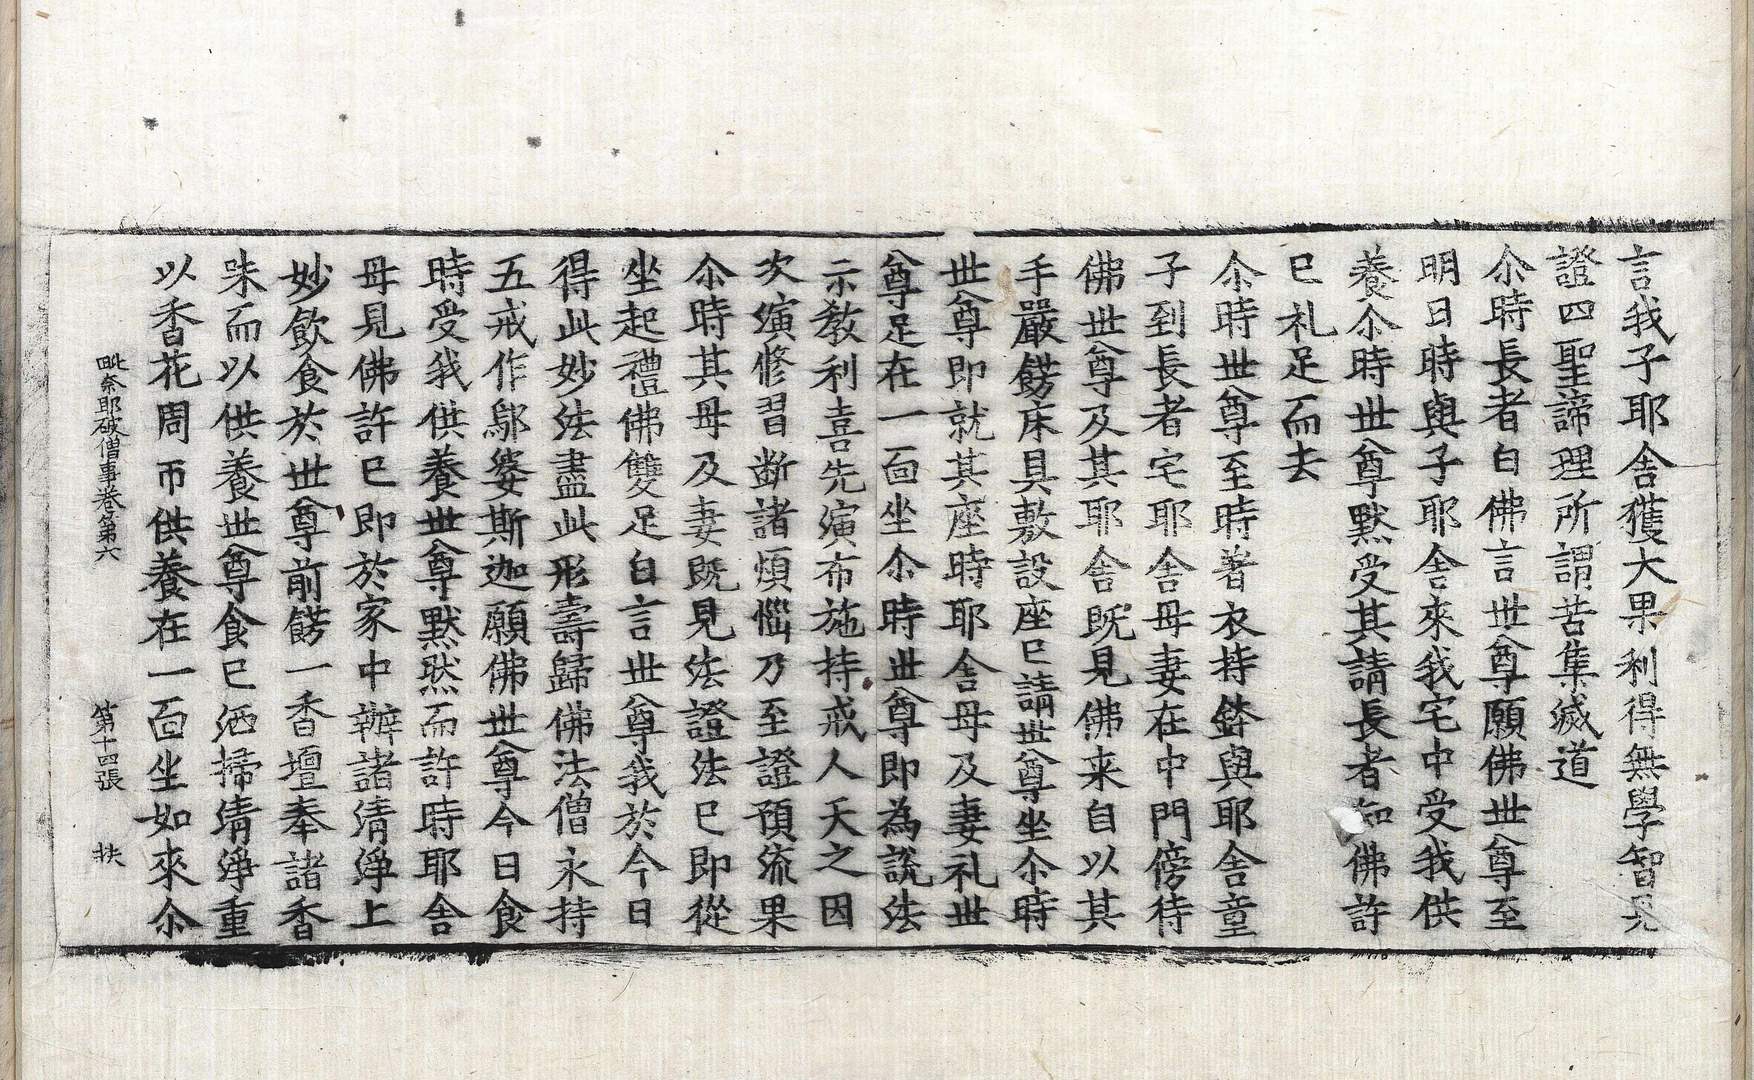 言我子耶舍獲大果利得無學智見
證四聖諦理所謂苦集滅道
尒時長者白佛言世尊願佛世尊至
明日時與子耶舍來我宅中受我供
養尒時世尊默受其請長者知佛許
已礼足而去
尒時世尊至時著衣持鉢與耶舍童
子到長者宅耶舍母妻在中門傍待
佛世尊及其耶舍既見佛来自以其
手嚴餝床具敷設座已請世尊坐尒時
世尊即就其座時耶舍母及妻礼世
尊足在一面坐尒時世尊即為說法
示教利喜先演布施持戒人天之因
次演修習斷諸煩惱乃至證預流果
尒時其母及妻既見法證法已即從
坐起禮佛雙足白言世尊我於今日
得此妙法盡此形壽歸佛法僧永持
五戒作鄔婆斯迦願佛世尊今日食
時受我供養世尊默然而許時耶舍
母見佛許已即於家中辦諸清淨上
妙飲食於世尊前餝一香壇奉諸香
味而以供養世尊食已洒掃清淨重
以香花周帀供養在一面坐如來尒
毗奈耶破僧事卷第六 第十四張 扶